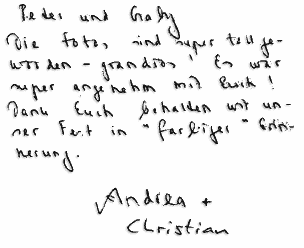 Peter und Gaby
Die Fotos, sind super toll ge-
worden - grandios! Es war
super angenehm mit Euch!
Dank Euch behalten wir un-
ser Fest in "farbiger" Erin-
nerung.
Andrea +
Christian